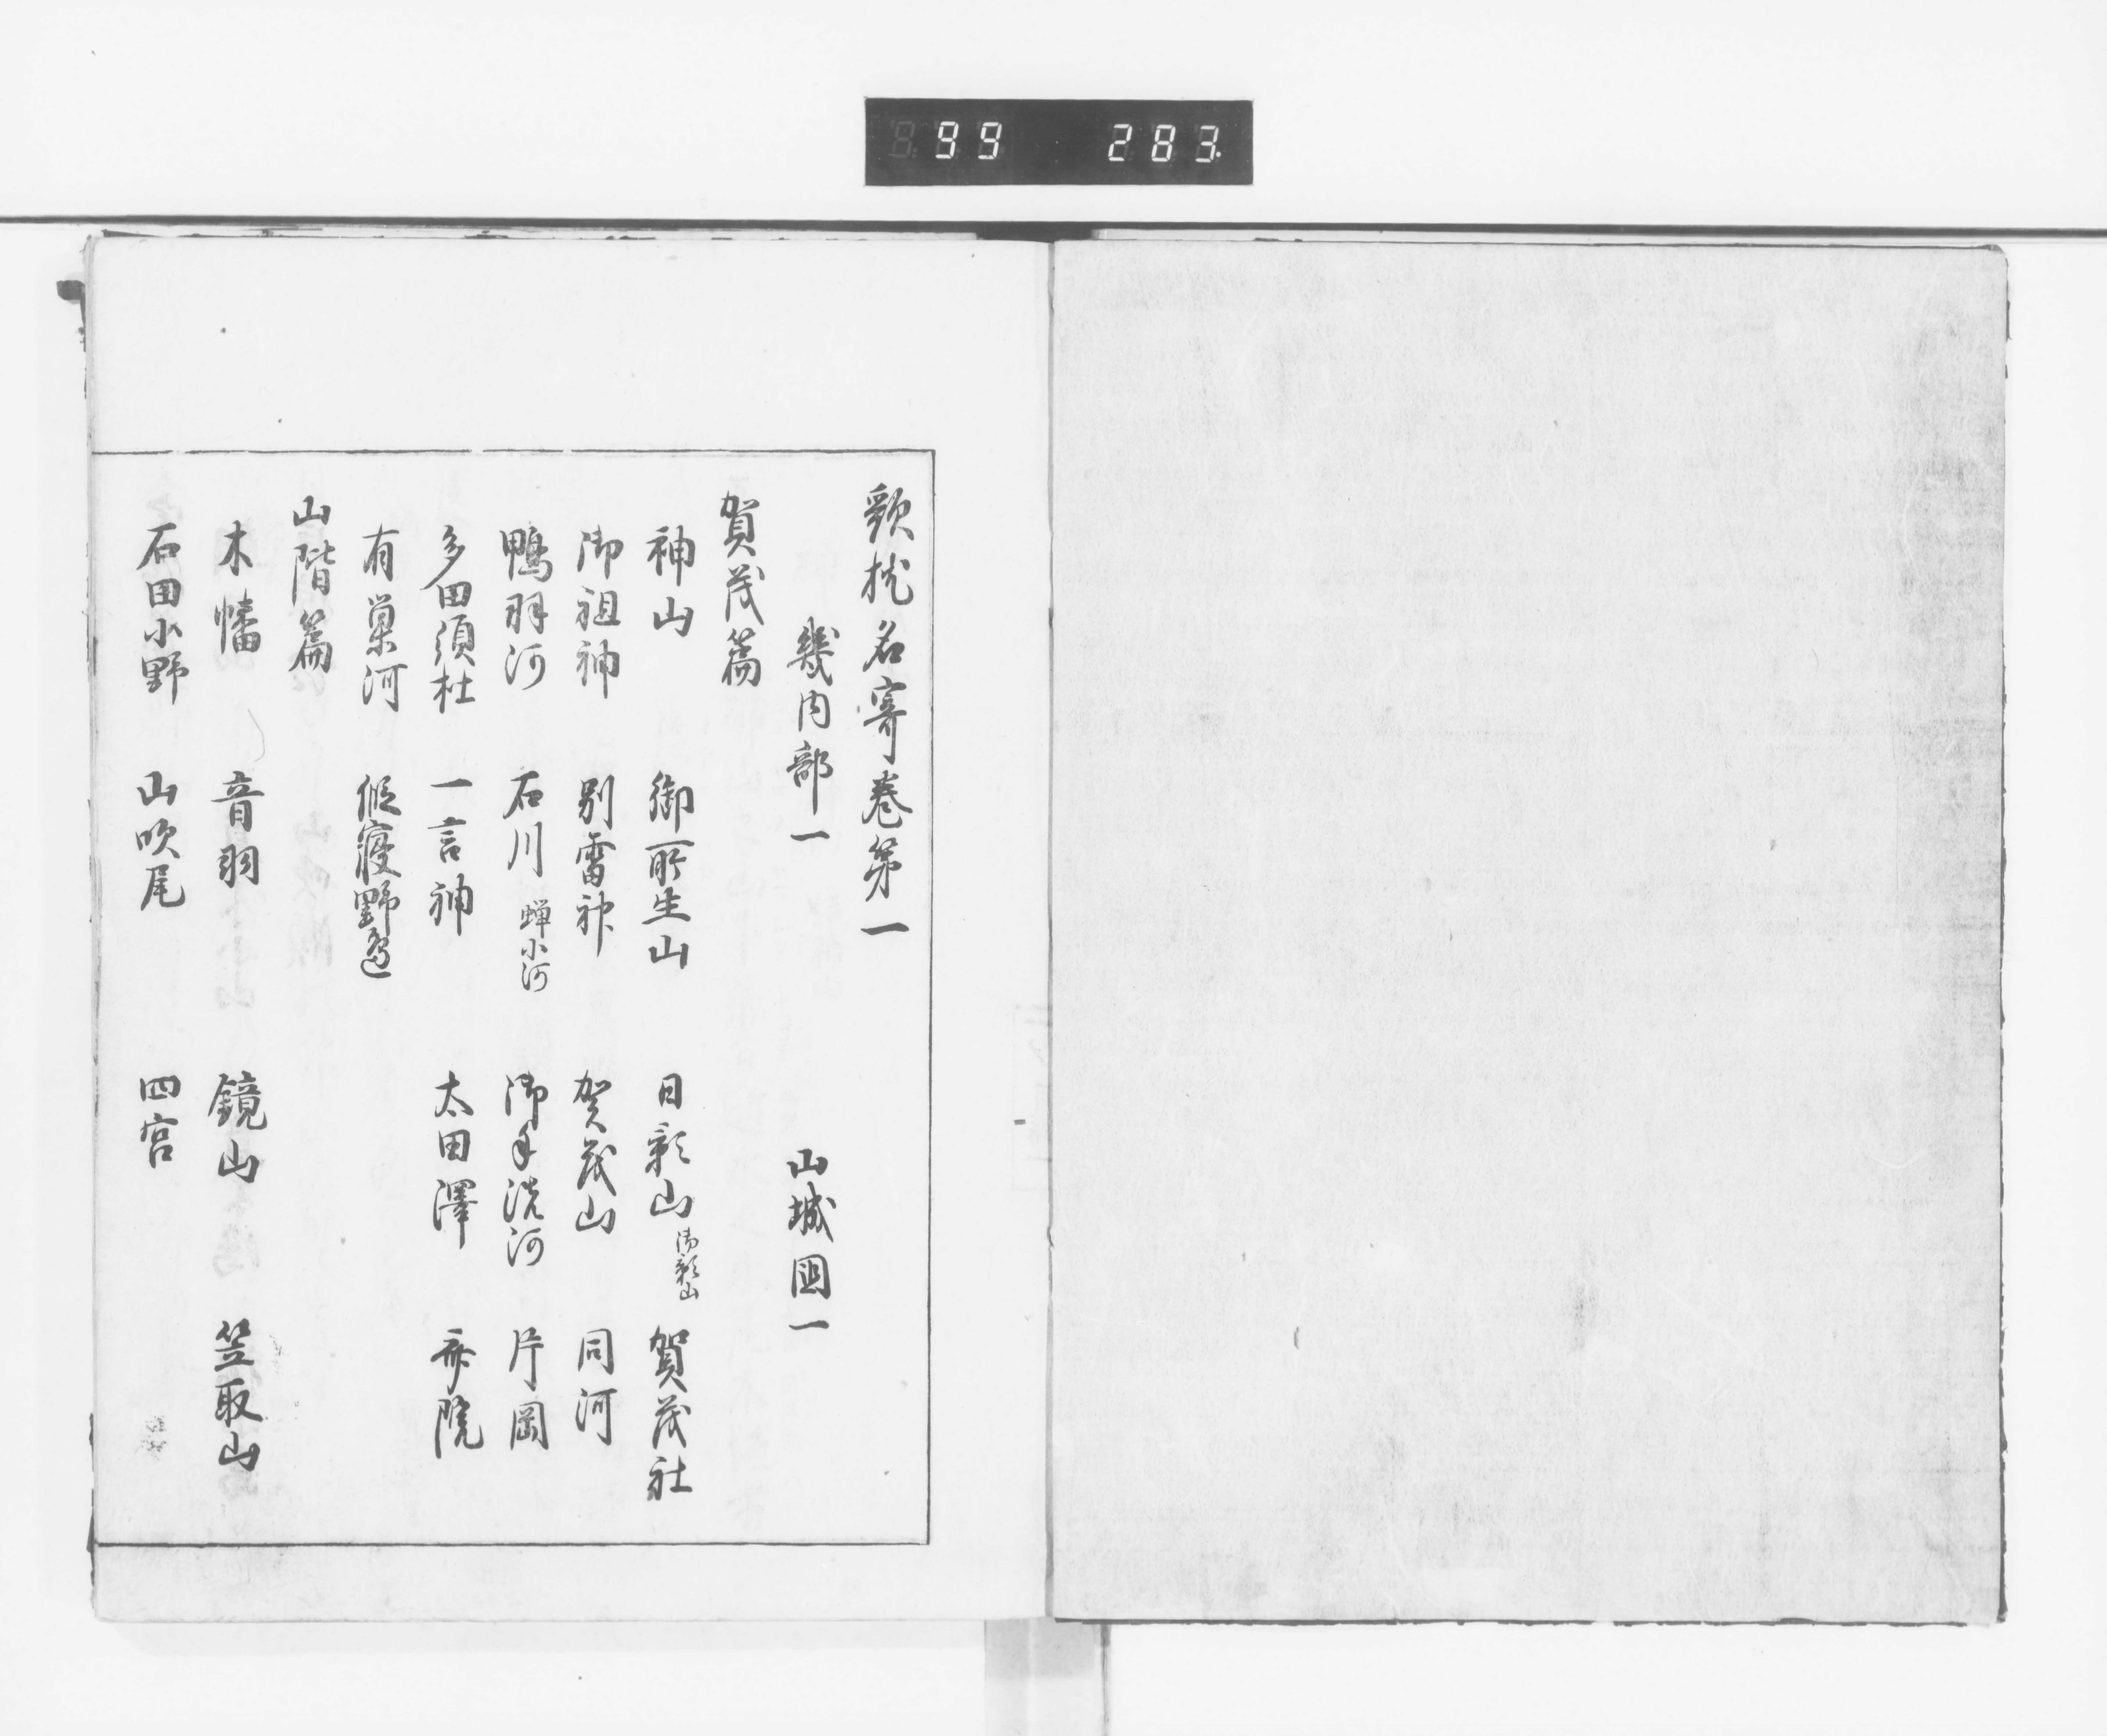 99 283
歌枕名寄巻第一
畿内部一 山城國一
賀茂篇
神山 御所生山 日影山 御影山 賀茂社
御祖神 別雷神 賀茂山 同河
鴨羽河 石川 蝉小河 御手洗河 片岡
多田須杜 一言神 太田澤 斎院
有巣河 假寝野邊
山階篇
木幡 音羽 鏡山 笠取山
石田小野 山吹尾 四宮